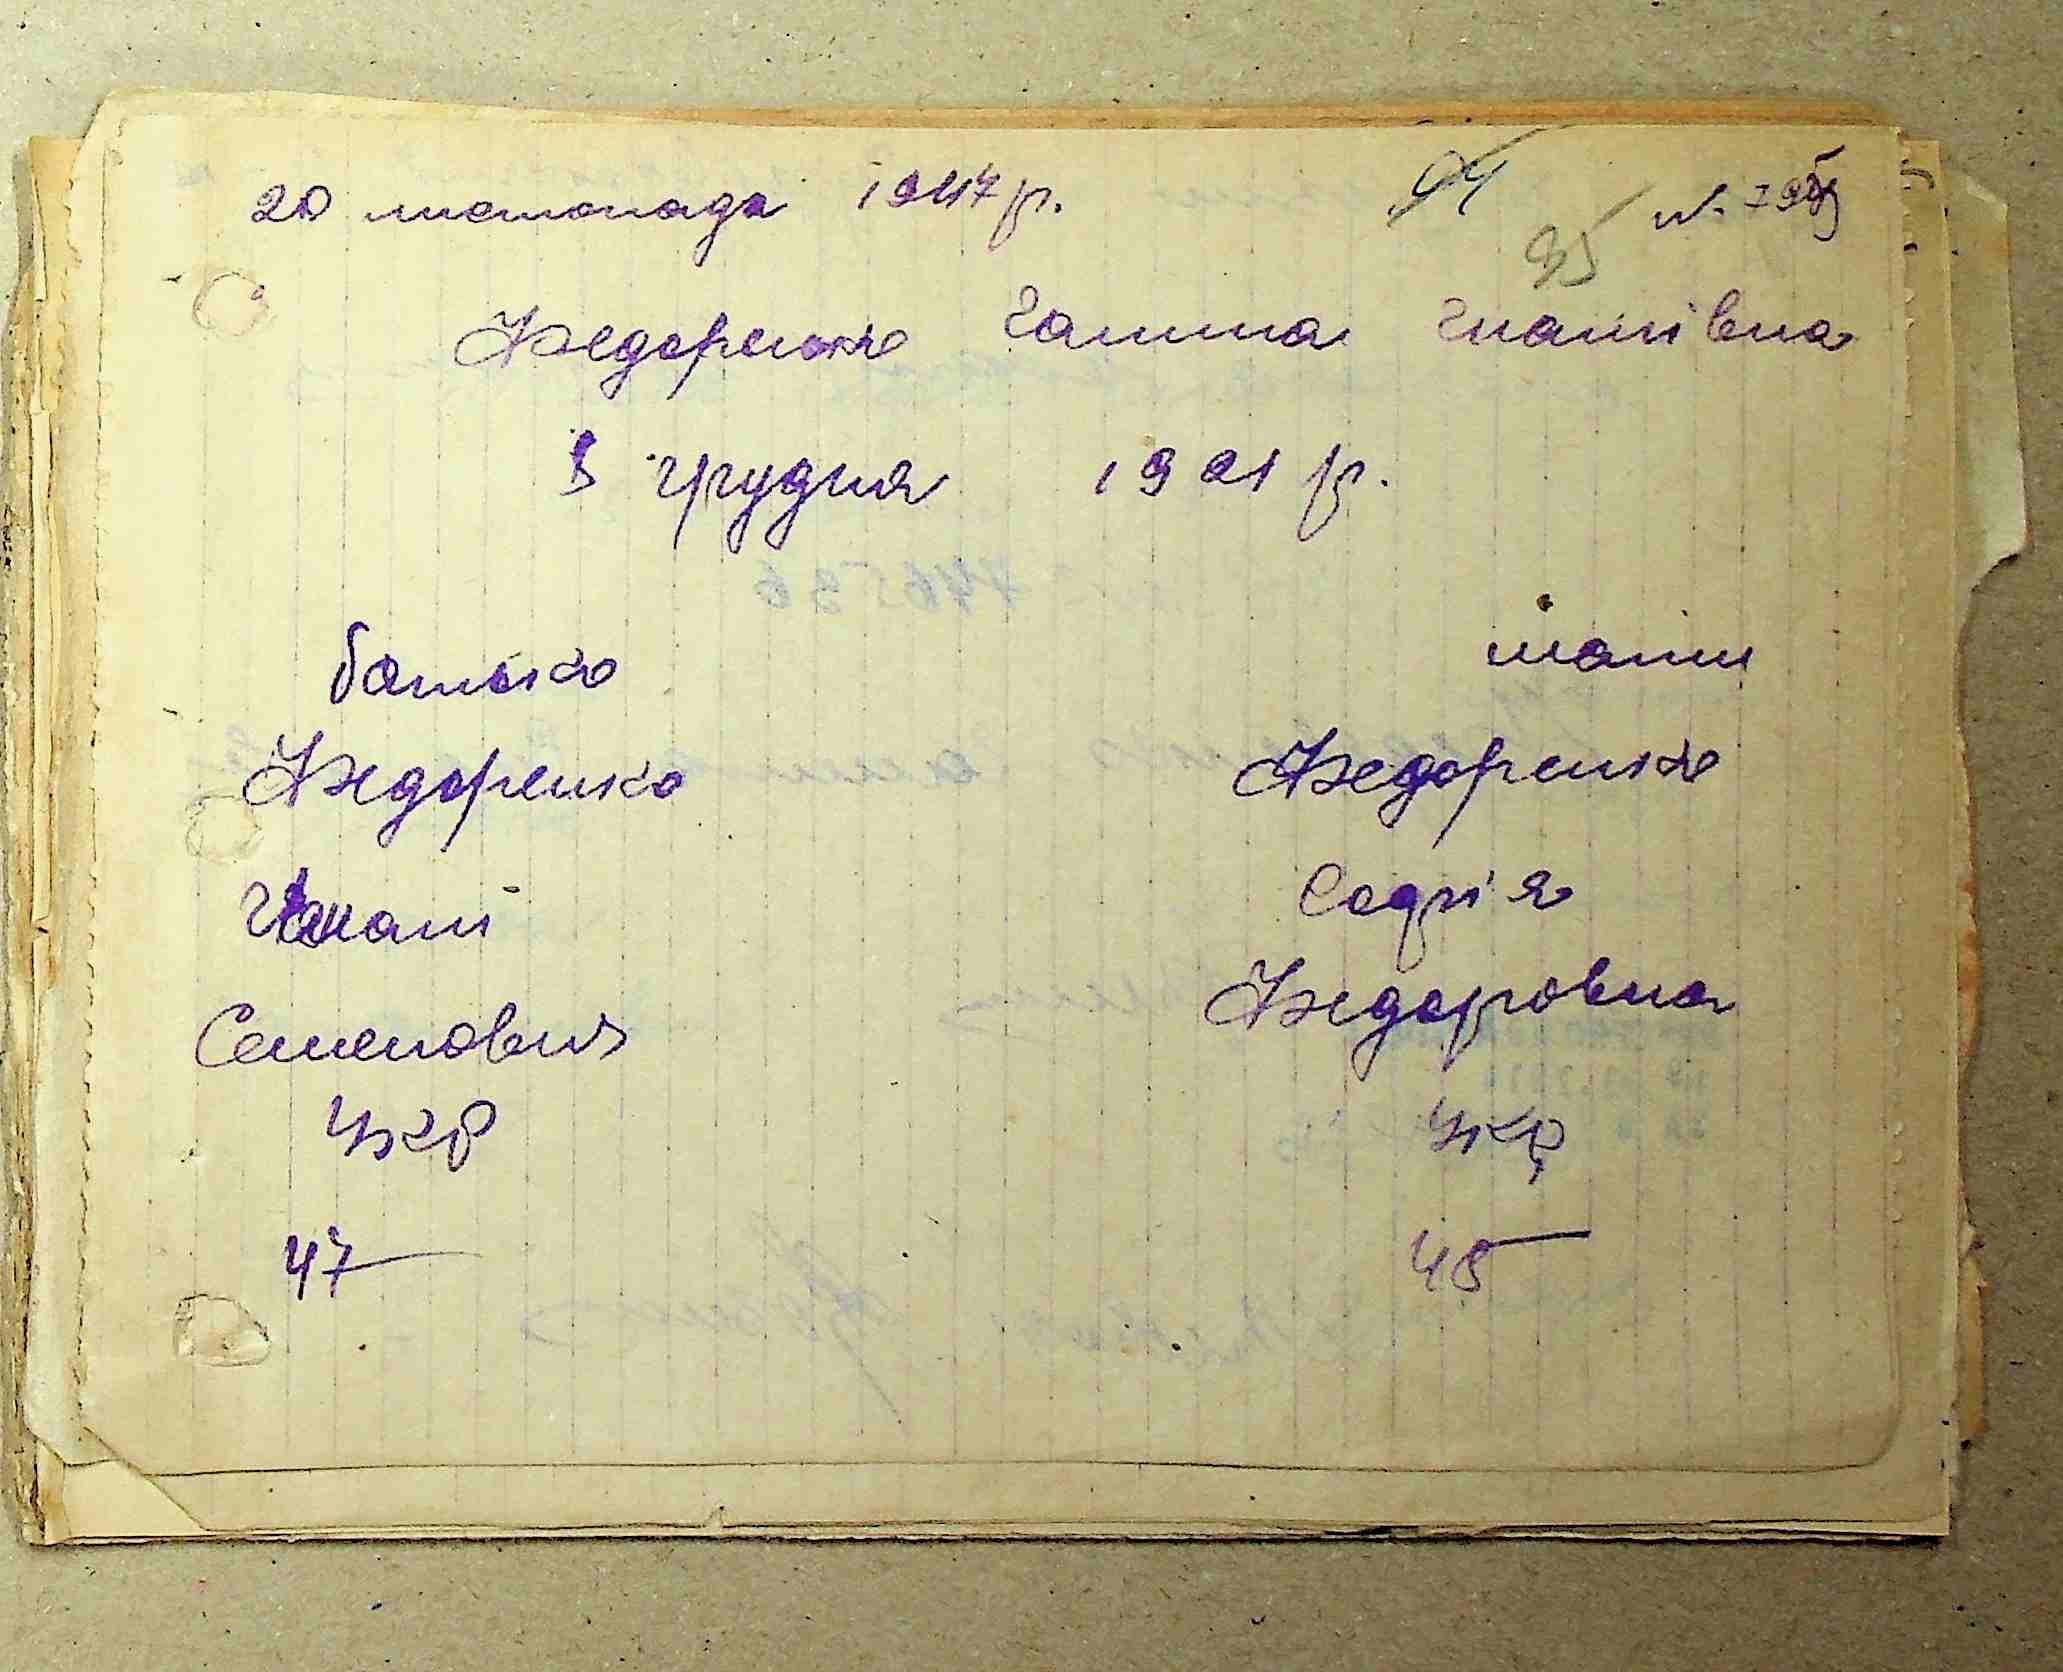 20 листопада 1947 р. 94 N. 795
95
Федоренко Галина Гнатівна
5 грудня 1921 р.
батько мати
Федоренко Федоренко
Гнат Софія
Семенович Федоровна
Укр Укр
47 48